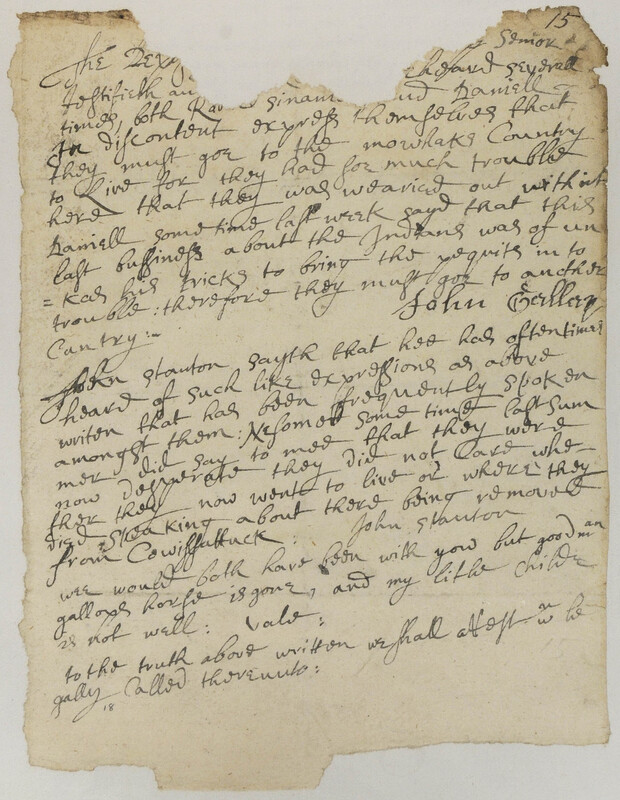 15
The Dep Senior
testifieth an heard severall
times, both and Daniell
In discontent express themselves that
they must goe to the mowhaks Country
to Live for they had soe much trouble
here that they was wearied out with it
Daniell some time last week sayd that this
last bussines about the Indians was of un
= kas his tricks to bring the pequits in to
trouble: therefore they must goe to another
Cuntry:- John Gallop
John Stanton sayth that hee has often times
heard of such like expressions as above
writen that has been frequently spoken
amongst them: some time last sum
mer did say to mee that they were
now desperate they did not Care whe
ther they now went to live or where they
died speaking about there being removed
from Cowissattuck: John Stanton
wee would both have been with you but goodman
gallops horse is gone, and my litle Childe
is not well: vale:
to the truth above written we shall attest wn le
gally Called thereunto:
18